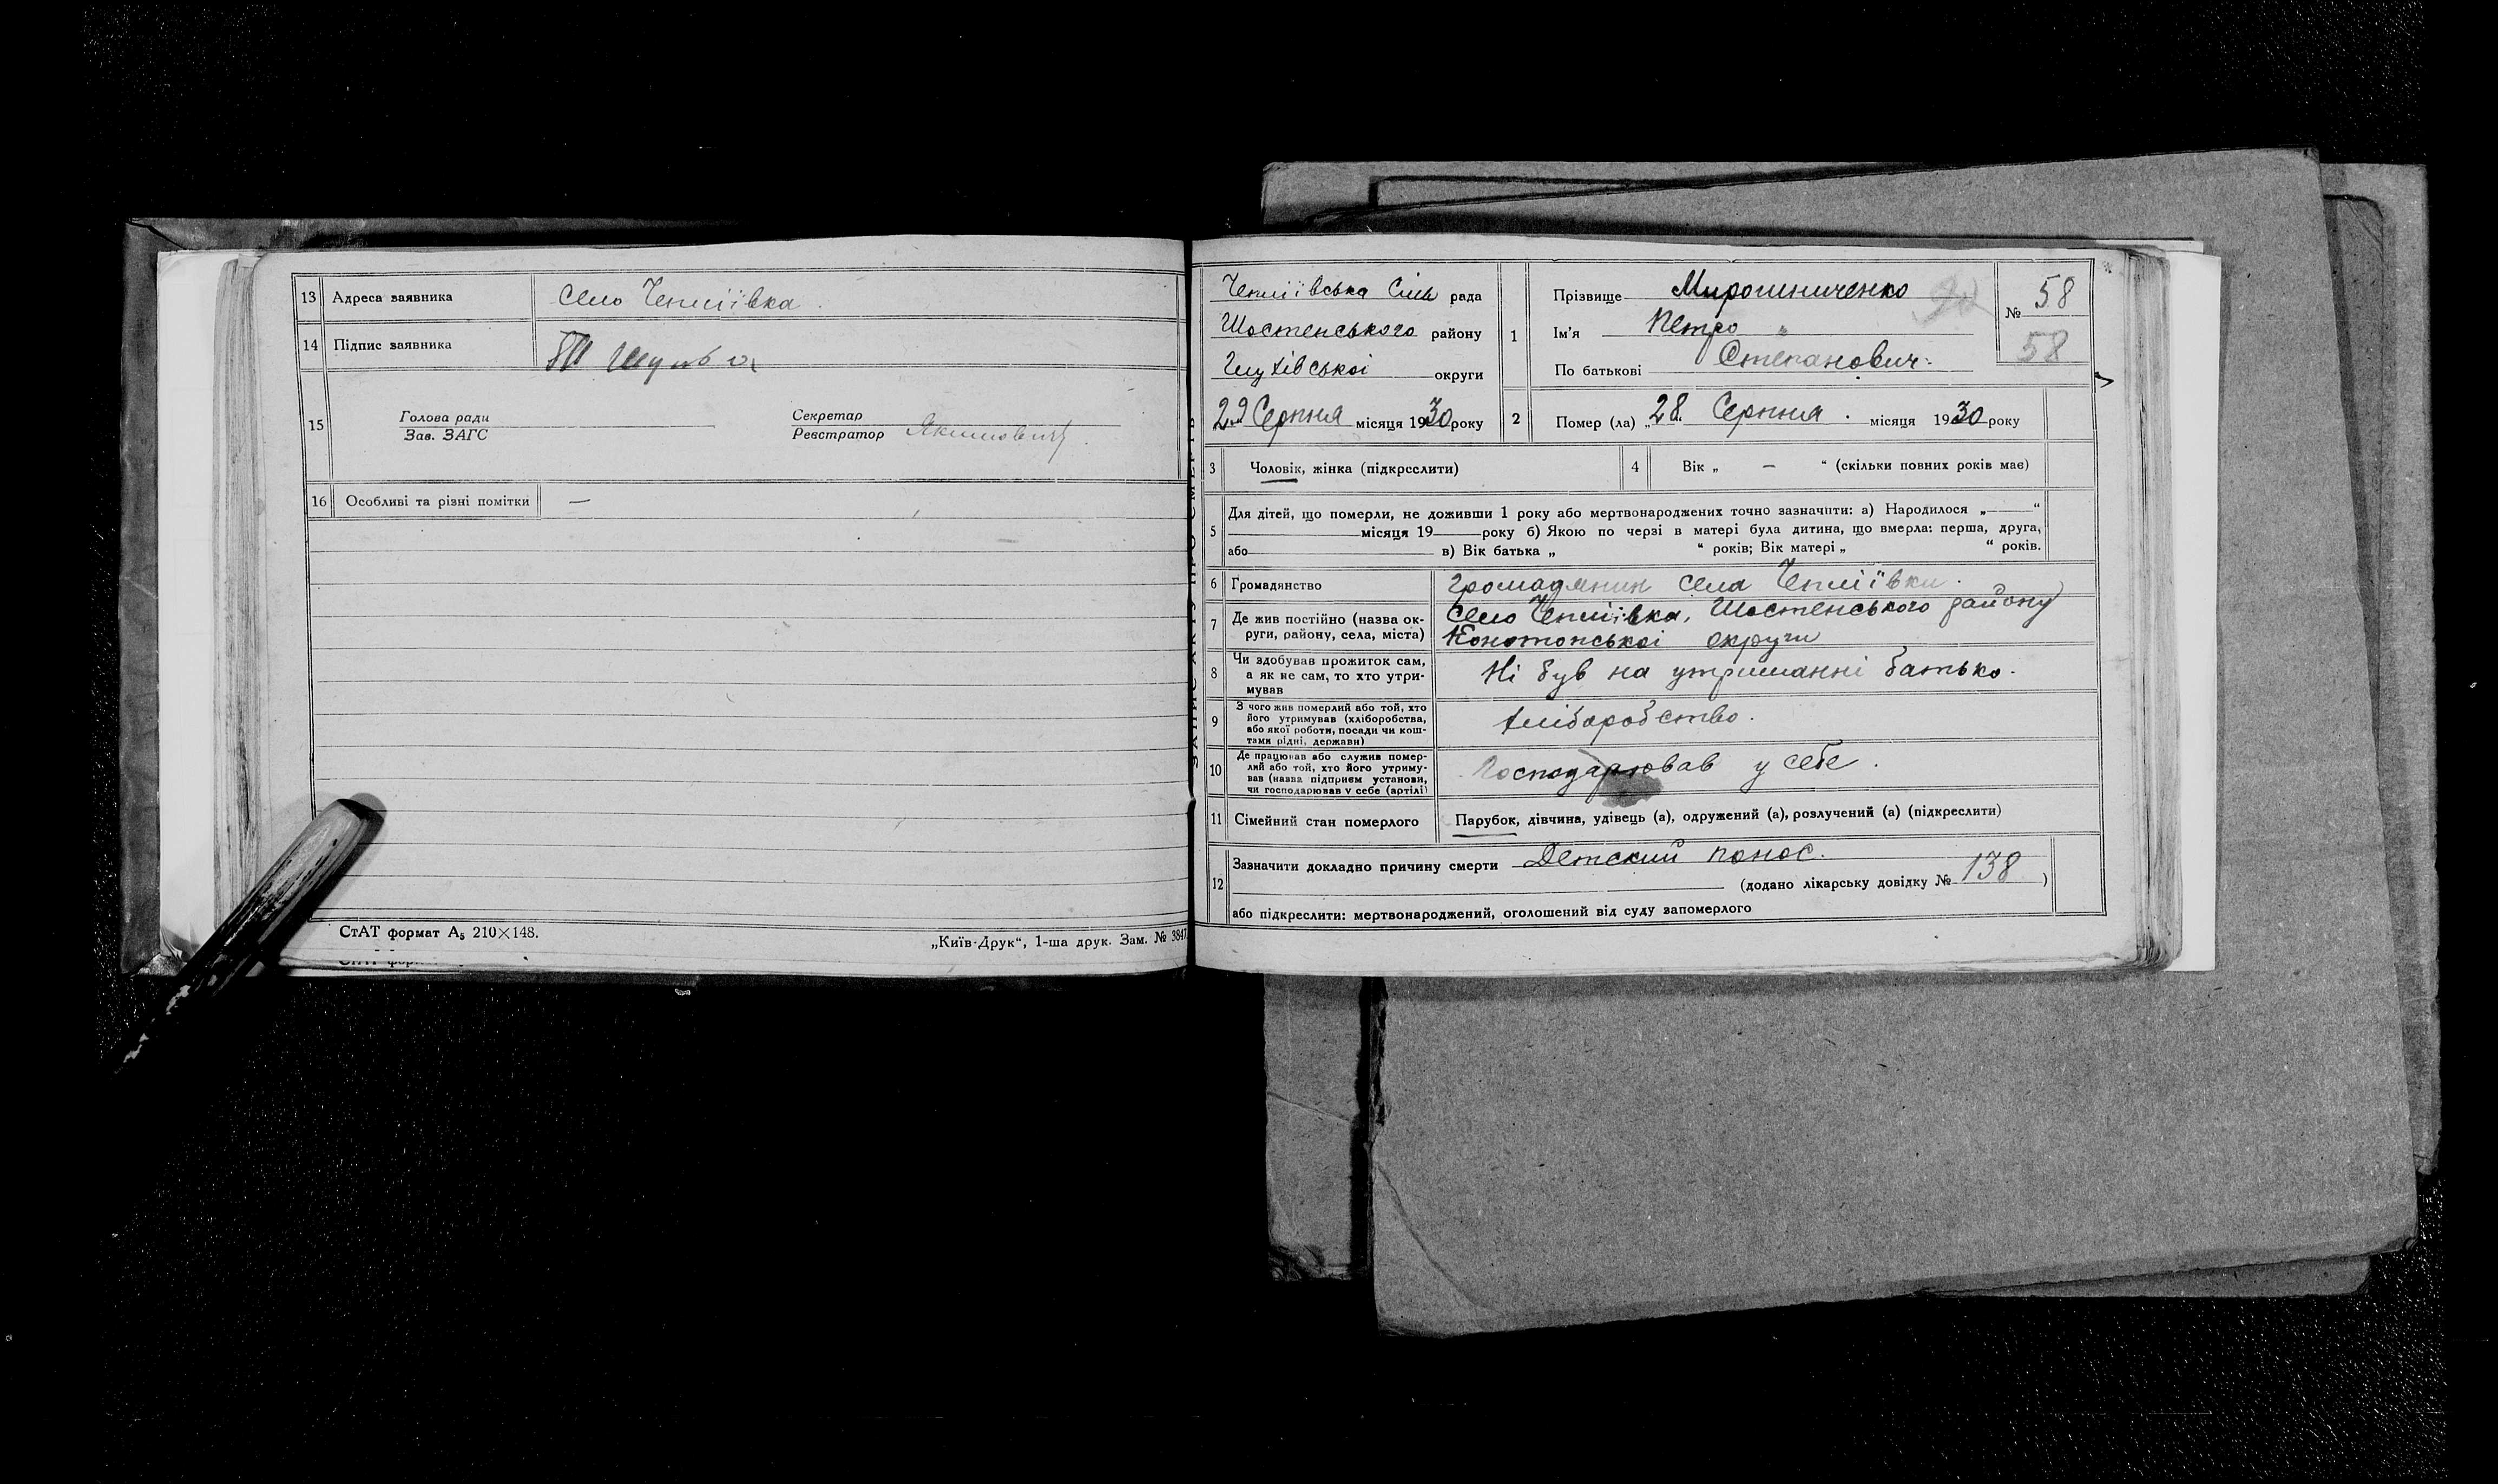 13 Адреса заявника Село Чепліївка.
14 Підпис заявника
15 Голова ради Секретар
Зав. ЗАГС Реєстратор Якимович
16 Особливі та різні помітки —
СтАТ формат А₅ 210×148.
„Київ-Друк“, 1-ша друк. Зам. № 3847
Чепліївська Сіль рада
Шостенського району
Глухівської округи
29 Серпня місяця 1930 року
1 Прізвище Мирошниченко
Ім'я Петро
По батькові Степанович
№ 58
58
2 Помер (ла) „28“ Серпня місяця 1930 року
3 Чоловік, жінка (підкреслити) 4 Вік „ — “ (скільки повних років має)
5 Для дітей, що померли, не доживши 1 року або мертвонароджених точно зазначити: а) Народилося „ “
місяця 19 року б) Якою по черзі в матері була дитина, що вмерла: перша, друга,
або в) Вік батька „ “ років; Вік матері „ “ років.
6 Громадянство громадянин села Чепліївки.
7 Де жив постійно (назва ок-
руги, району, села, міста)
Село Чепліївка, Шостенського району
Конотопської округи
8 Чи здобував прожиток сам,
а як не сам, то хто утри-
мував
Ні був на утриманні батько.
9 З чого жив померлий або той, хто
його утримував (хліборобства,
або якої роботи, посади чи кош-
тами рідні, держави)
хліборобство.
10 Де працював або служив помер-
лий або той, хто його утриму-
вав (назва підприєм установи,
чи господарював у себе (артілі)
Господарював у себе.
11 Сімейний стан померлого Парубок, дівчина, удівець (а), одружений (а), розлучений (а) (підкреслити)
12 Зазначити докладно причину смерти Детский понос.
(додано лікарську довідку № 138 )
або підкреслити: мертвонароджений, оголошений від суду запомерлого